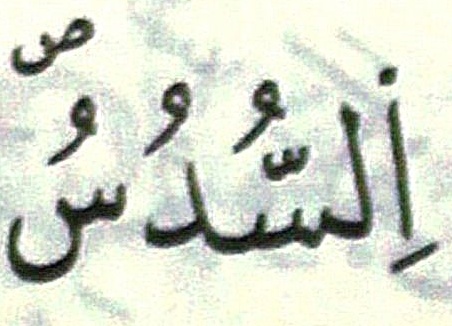 اِ۬لسُّدُسُۖ